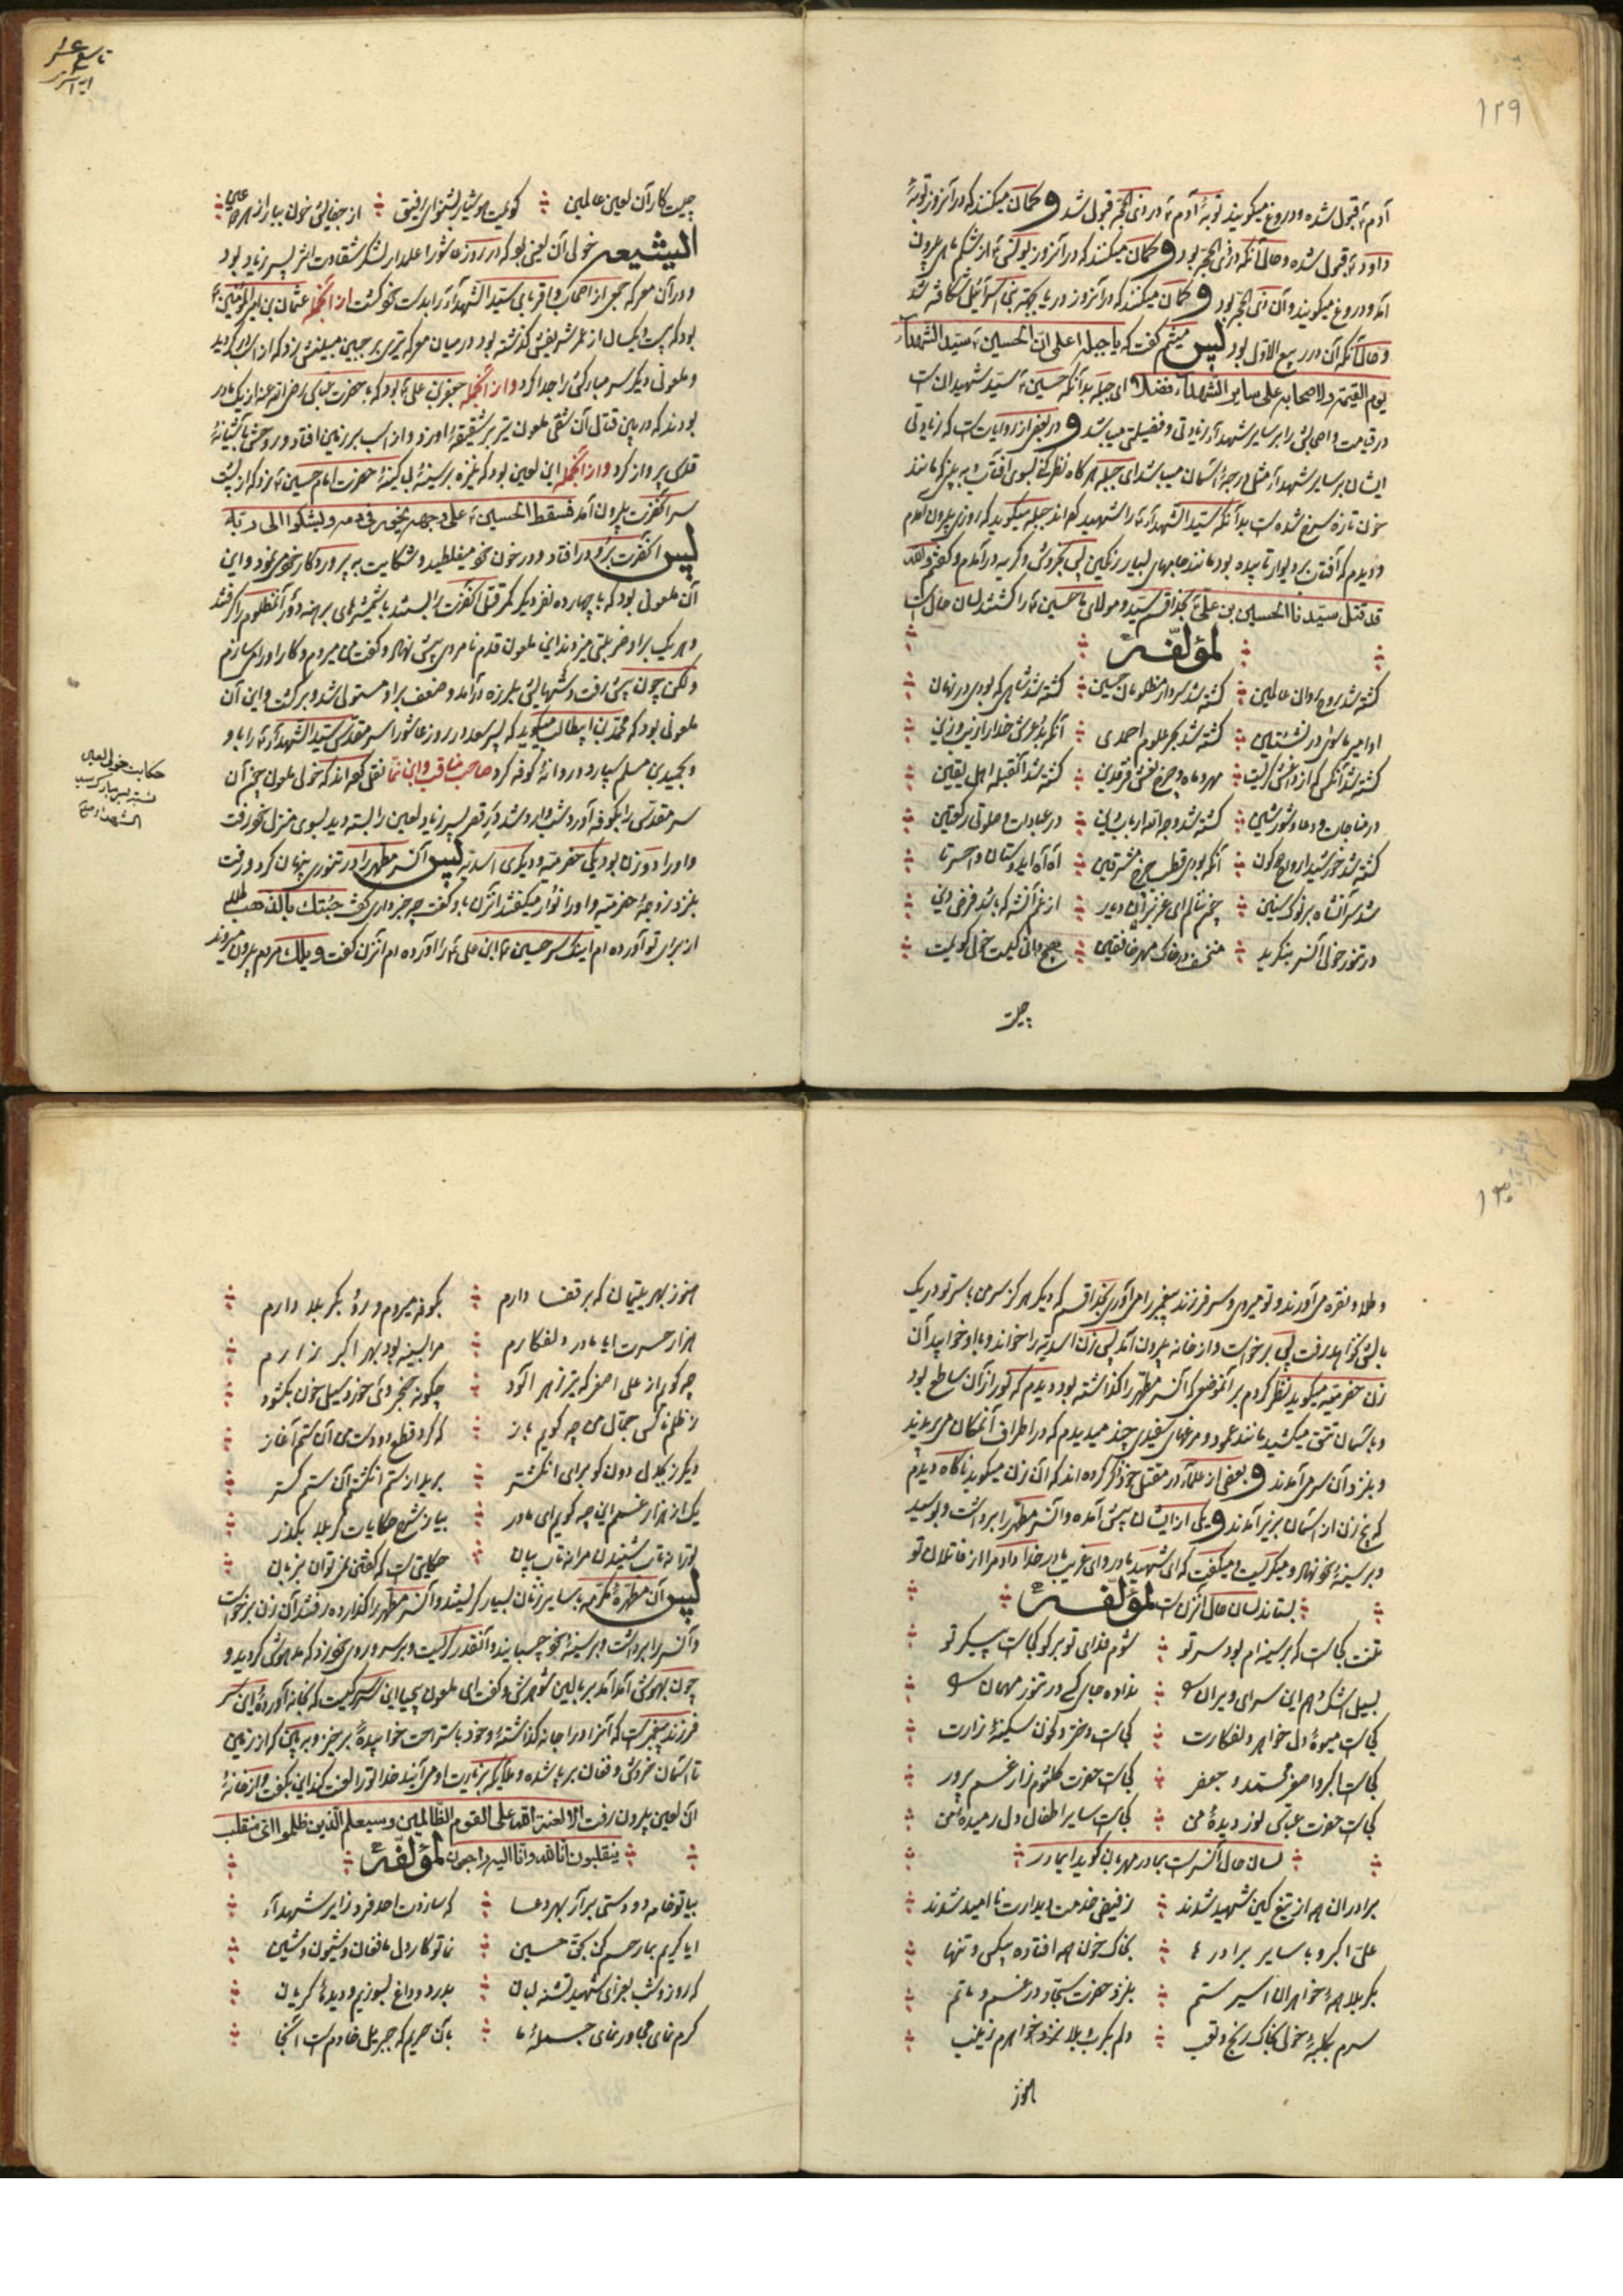 ۱۲۹
آدم ۴ قبول شده و دروغ میگویند توبهٔ آدم ۴ در ذی الحجّه قبول شد و گمان میکنند که در آنروز توبهٔ
داود ۴ قبول شده و حال آنکه در ذی الحجّه بود و گمان میکنند که در آنروز یونس ۴ از شکم ماهی بیرون
آمد و دروغ میگویند و آن ذی الحجّه بود و گمان میکنند که در آنروز دریا بجهة بنی اسرائیل شکافته شد
و حال آنکه آن در ربیع الاوّل بود پس میثم گفت که یا جبله اعلمی انّ الحسین ۴ سیّد الشهدآء
یوم القیمة و لاصحابه علی سایر الشهدآء فضلا ای جبله بدانکه حسین ۴ سیّد شهیدان است
در قیامت و اصحابش را بر سایر شهدآء زیادتی و فضیلتی میباشد و در بعضی از روایات است که زیادتی
ایشان بر سایر شهدآء مثل درجهٔ آسمان میباشد ای جبله هر گاه نظر کنی بسوی آفتاب و به بینی که مانند
خون تازه سرخ شده است بدانکه سیّد الشهدآء ۴ را شهید کرده اند جبله میگوید که روزی بیرون آمدم
و دیدم که آفتاب بر دیوار تابیده بود مانند جامهای بسیار رنگین پس بخروش و گریه در آمدم و گفتم والله
قد قتل سیّدنا الحسین بن علیّ ۴ بخدا قسم سیّد و مولای ما حسین ۴ را کشتند لسان حال است
لمؤلّفه
کشته شد روح روان عالمین کشته شد سردار مظلومان حسین کشته شد شاهی که بودی در نهان
او امیر ماسوا در نشئتین کشته شد بحر علوم احمدی آنکه بد عرش خدا را زیب و زین
کشته شد آنکس که از داغش گریست مهر و ماه و چرخ نعش و فرقدین کشته شد آنقبله اهل یقین
در مناجات و دعا و شور و شین کشته شد وجه اله ارباب دین در عبادات و صلوتی رکعتین
کشته شد خورشید اروح دو کون آنکه بودی قطب چرخ مشرقین آه آه ای دوستان وا حسرتا
شد سر آنشاه بر نوک سنین چون ننالم ای عزیزان در دیر از غم آنشه که باشد فرض دین
در تنور خولی آنسر بنگرید منخسف در خاک مهر خافقین هیچ دانی کیست خولی گویمت
چیست
تاسع عشر
چیست کار آن لعین عالمین گویمت هوشیار بشنو ای رفیق از جفایش خون ببار از هر دو عین
الشیعه خولی آن لعینی بود که در روز عاشورا علمدار لشکر شقاوت اثر پسر زیاد بود
و در آن معرکه جمعی از اصحاب و اقربای سیّد الشهدآء ۴ را بدست خود کشت از آنجمله عثمان بن امیر المؤمنین ۴
بود که بیست و یکسال از عمر شریفش گذشته بود در میان معرکه تیری بر جبین مبینش زد که از اسب در گردید
و ملعونی دیگر سر مبارکش را جدا کرد و از آنجمله جعفر بن علی ۴ بود که با حضرت عباس رضی الله عنه از یک مادر
بودند که در بین قتال آن شقی ملعون تیر بر شقیقهٔ او زد و از اسب بر زمین افتاد و روحش بآشیانهٔ
قدس پرواز کرد و از آنجمله این لعین بود که نیزه بر سینهٔ بی کینهٔ حضرت امام حسین ۴ زد که از پشت
سر آنحضرت بیرون آمد فسقط الحسین ۴ علی وجهه یخور فی دمه و یشکوا الی ربّه
پس آنحضرت بر رو در افتاد و در خون خود میغلطید و شکایت به پروردگار خود می نمود و این
آن ملعونی بود که با چهارده نفر دیگر کمر قتل آنحضرت را بستند با شمشیرهای برهنه دور آنمظلوم را گرفتند
و هر یک بر او ضربتی میزدند این ملعون قدم نامردی پیش نهاد و گفت من میروم و کار او را میسازم
ولکن چون پیش رفت دستهایش بلرزه در آمد و ضعف بر او مستولی شد و برگشت و این آن
ملعونی بود که محمّد بن ابیطالب میگوید که پسر سعد در روز عاشورا سر مقدّس سیّد الشهدآء ۴ را باو
و بحمید بن مسلم سپارد و روانهٔ کوفه کرد صاحب مناقب و ابن نما نقل کرده اند که خولی ملعون چون آن
سر مقدّس را بکوفه آورد شب وارد شد و در قصر پسر زیاد لعین را بسته دید بسوی منزل خود رفت
و او را دو زن بود یکی حضرمیّه و دیگری اسدیّه پس آنسر مطهّر را در تنوری پنهان کرد و رفت
بنزد زوجهٔ حضرمیّه و او را نوار میگفتند آنزن باو گفت چه خبر داری گفت جئتک بالذهب طلای
از برای تو آورده ام اینک سر حسین ۴ ابن علی ۴ را آورده ام آنزن گفت ویلک مردم بیرون میروند
حکایت خولی لعین
نسبت بسر مبارک سید
الشهداء ۴
۱۳۰
و طلا و نقره می آورند و تو میروی و سر فرزند پیغمبر را می آوری بخدا قسم که دیگر هرگز سر من با سر تو در یک
بالش نخواهد رفت پس برخواست و از خانه بیرون آمد پس زن اسدیّه را خواند و با او خوابید آن
زن حضرمیّه میگوید نظر کردم بر آنموضعی که آنسر مطهّر را گذاشته بود دیدم که نور از آن ساطع بود
و بآسمان تتق میکشید مانند عمود و مرغهای سفیدی چند میدیدم که در اطراف آنمکان می پریدند
و بنزد آن سر می آمدند و بعضی از علمآء در مقتل خود ذکر کرده اند که آن زن میگوید ناگاه دیدم
که پنج زن از آسمان بزیر آمدند و یکی از ایشان پیش آمده و آنسر مطهّر را برداشت و بوسید
و بر سینهٔ خود نهاد و میگریست و میگفت که ای شهید مادر و ای غریب مادر خدا داد مرا از قاتلان تو
بستاند لسان حال آنزن است لمؤلّفه
تنت کجاست که بر سینه ام بود سر تو شوم فدای تو بر گو کجاست پیکر تو
بسیل اشک دهم این سرای ویران را نداده جای کسی در تنور مهمان را
کجاست میوهٔ دل خواهر دلفکارت کجاست دختر محزون سکینهٔ زارت
کجاست اکبر و اصغر محمّد و جعفر کجاست حضرت کلثوم زار غم پرور
کجاست حضرت عبّاس نور دیدهٔ من کجاست سایر اطفال دل رمیدهٔ من
لسان حال آنسر است بمادر مهربان گوید ایمادر
برادران همه از تیغ کین شهید شدند ز فیض خدمت دیدارت نا امید شدند
علیّ اکبر و با سایر برادرها بخاک خون همه افتاده بیکس و تنها
بکربلا همهٔ خواهران اسیر ستم بنزد حضرت سجّاد در غم و ماتم
سرم بکلبهٔ خولی بخاک رنج و تعب دلم بکرب و بلا نزد خواهرم زینب
هنوز
هنوز بهر یتیمان که بر قفا دارم بکوفه میروم و رو بکربلا دارم
هزار حسرت ایا مادر دلفکارم مرا بسینه بود بهر اکبر زارم
چه گویم از علی اصغر که تیر زهر آلود چگونه حنجر وی خورد و سیل خون بگشود
ز ظلم ناکس جمّال من چه گویم باز که کرد قطع دو دست من آن ستم آغاز
دیگر ز بجدل دون کو برای انگشتر برید از ستم انگشتم آن ستم گستر
یک از هزار غمم این چه گویم ای مادر بیا ز شرح حکایات کربلا بگذر
تو را نه تاب شنیدن مرا نه تاب بیان حکایتی است که گفتن نمیتوان بزبان
پس آن مطهّرهٔ مکرّمه با سایر زنان بسیار گریستند و آنسر مطهّر را گذارده رفتند آن زن برخواست
و آنسر را برداشت و بر سینهٔ خود چسبانید و آنقدر گریست و بر سر و روی خود زد که مدهوش گردید و
چون بهوش آمد آمد بر بالین شوهرش و گفت ای ملعون بیحیا این سر کیست که بخانه آوردهٔ این سر
فرزند پیغمبر است که آنرا در اینجا نه گذاشتهٔ و خود باستراحت خوابیدهٔ برخیز و ببین که از زمین
تا آسمان خروش و فغان بر پا شده و ملائکه بزیارت او می آیند خدا تو را لعنت کند این بگفت و از خانهٔ
آن لعین بیرون رفت الا لعنة الله علی القوم الظّالمین و سیعلم الّذین ظلموا ای منقلب
ینقلبون انّا لله و انّا الیه راجعون لمؤلّفه
بیا تو خامه دو دستی بر آر بهر دعا که سازدت احد فرد زایر شهدآء
ایا کریم بما رحم کن بحقّ حسین نما تو کار دل ما فغان و شیون و شین
که روز و شب بعزای شهید تشنه لبان بدرد و داغ بسوزیم و دیدها گریان
کرم نمای مجاور نمای جملهٔ ما بآن حریم که جبریل خادم است آنجا